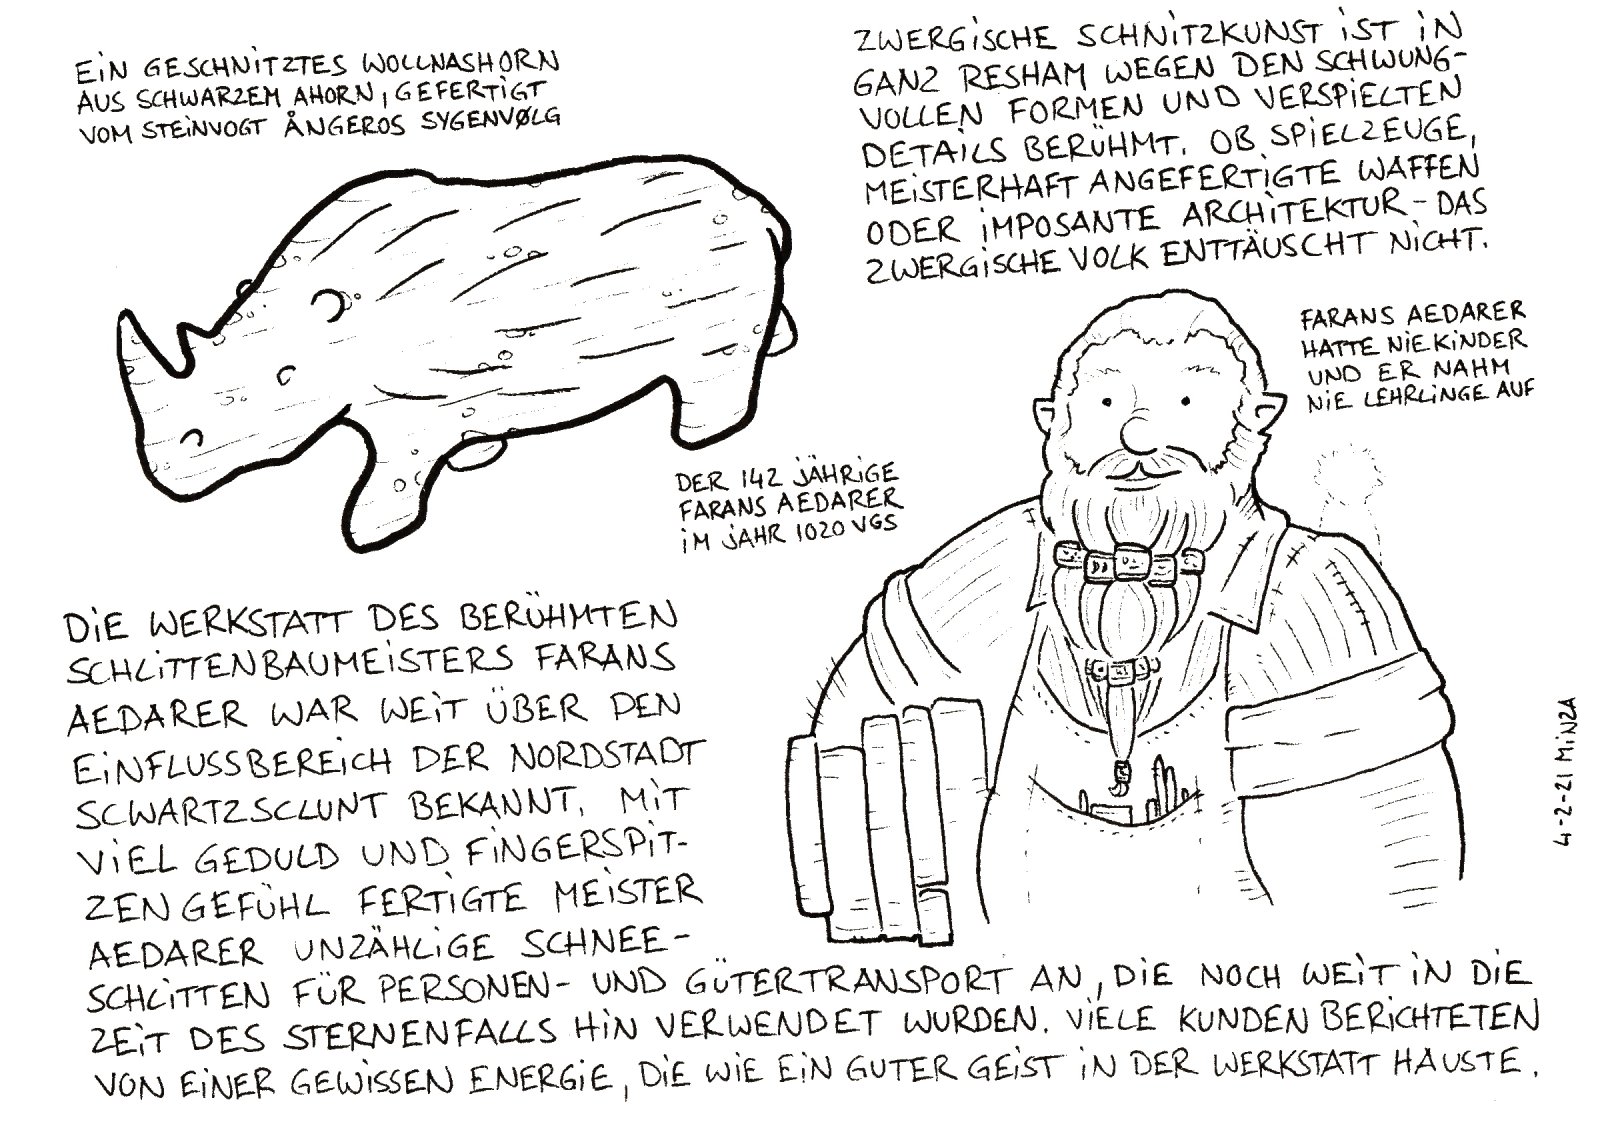 EIN GESCHNITZTES WOLLNASHORN
AUS SCHWARZEM AHORN, GEFERTIGT
VOM STEINVOGT ÅNGEROS SYGENVØLG
ZWERGISCHE SCHNITZKUNST IST IN
GANZ RESHAM WEGEN DEN SCHWUNG-
VOLLEN FORMEN UND VERSPIELTEN
DETAILS BERÜHMT. OB SPIELZEUGE,
MEISTERHAFT ANGEFERTIGTE WAFFEN
ODER IMPOSANTE ARCHITEKTUR - DAS
ZWERGISCHE VOLK ENTTÄUSCHT NICHT.
FARANS AEDARER
HATTE NIE KINDER
UND ER NAHM
NIE LEHRLINGE AUF
DER 142 JÄHRIGE
FARANS AEDARER
IM JAHR 1020 VGS
DIE WERKSTATT DES BERÜHMTEN
SCHLITTENBAUMEISTERS FARANS
AEDARER WAR WEIT ÜBER DEN
EINFLUSSBEREICH DER NORDSTADT
SCWARTZSCLUNT BEKANNT. MIT
VIEL GEDULD UND FINGERSPIT-
ZENGEFÜHL FERTIGTE MEISTER
AEDARER UNZÄHLIGE SCHNEE-
SCHLITTEN FÜR PERSONEN- UND GÜTERTRANSPORT AN, DIE NOCH WEIT IN DIE
ZEIT DES STERNENFALLS HIN VERWENDET WURDEN. VIELE KUNDEN BERICHTETEN
VON EINER GEWISSEN ENERGIE, DIE WIE EIN GUTER GEIST IN DER WERKSTATT HAUSTE.
4-2-21 MINZA